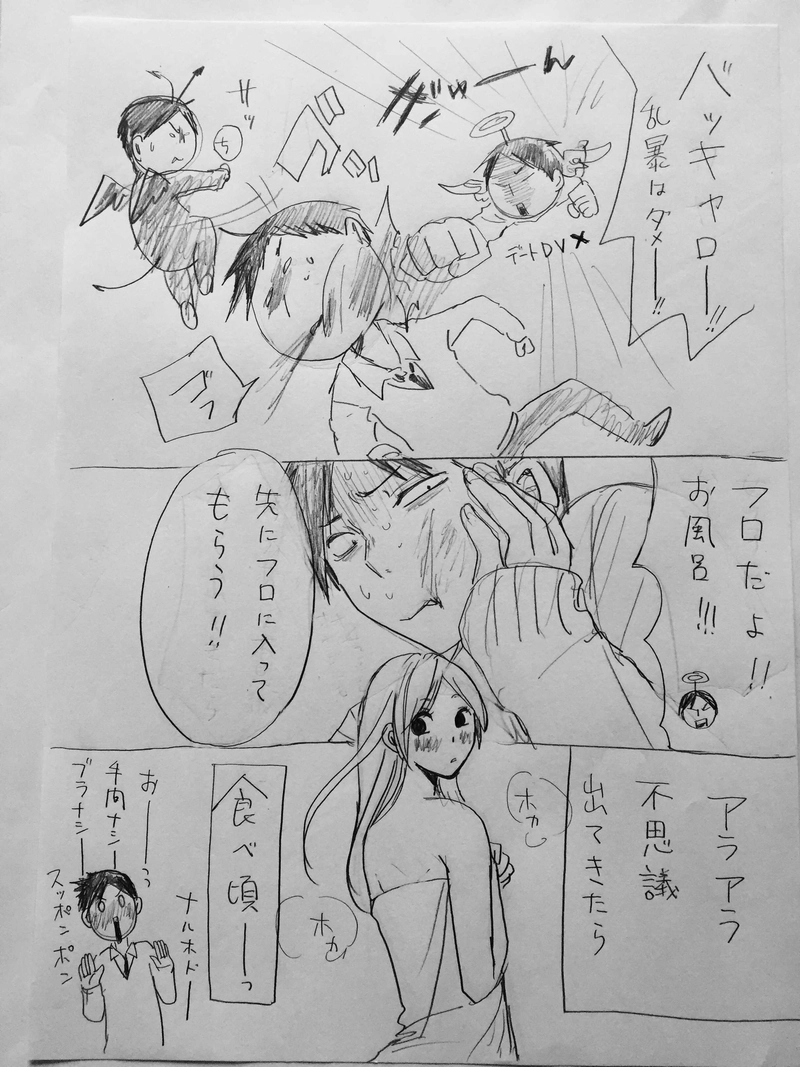 バッキャロー!!
乱暴はダメー!!
ぎゅーん
デートDV×
グッ
サッ
ち
ゴッ
フロだよ!!
お風呂!!!
先にフロに入って
もらう!!
アラアラ
不思議
出てきたら
ホカ
ホカ
食べ頃ーっ
ナルホドー
おーーっ
手間ナシー
ブラナシー
スッポンポン